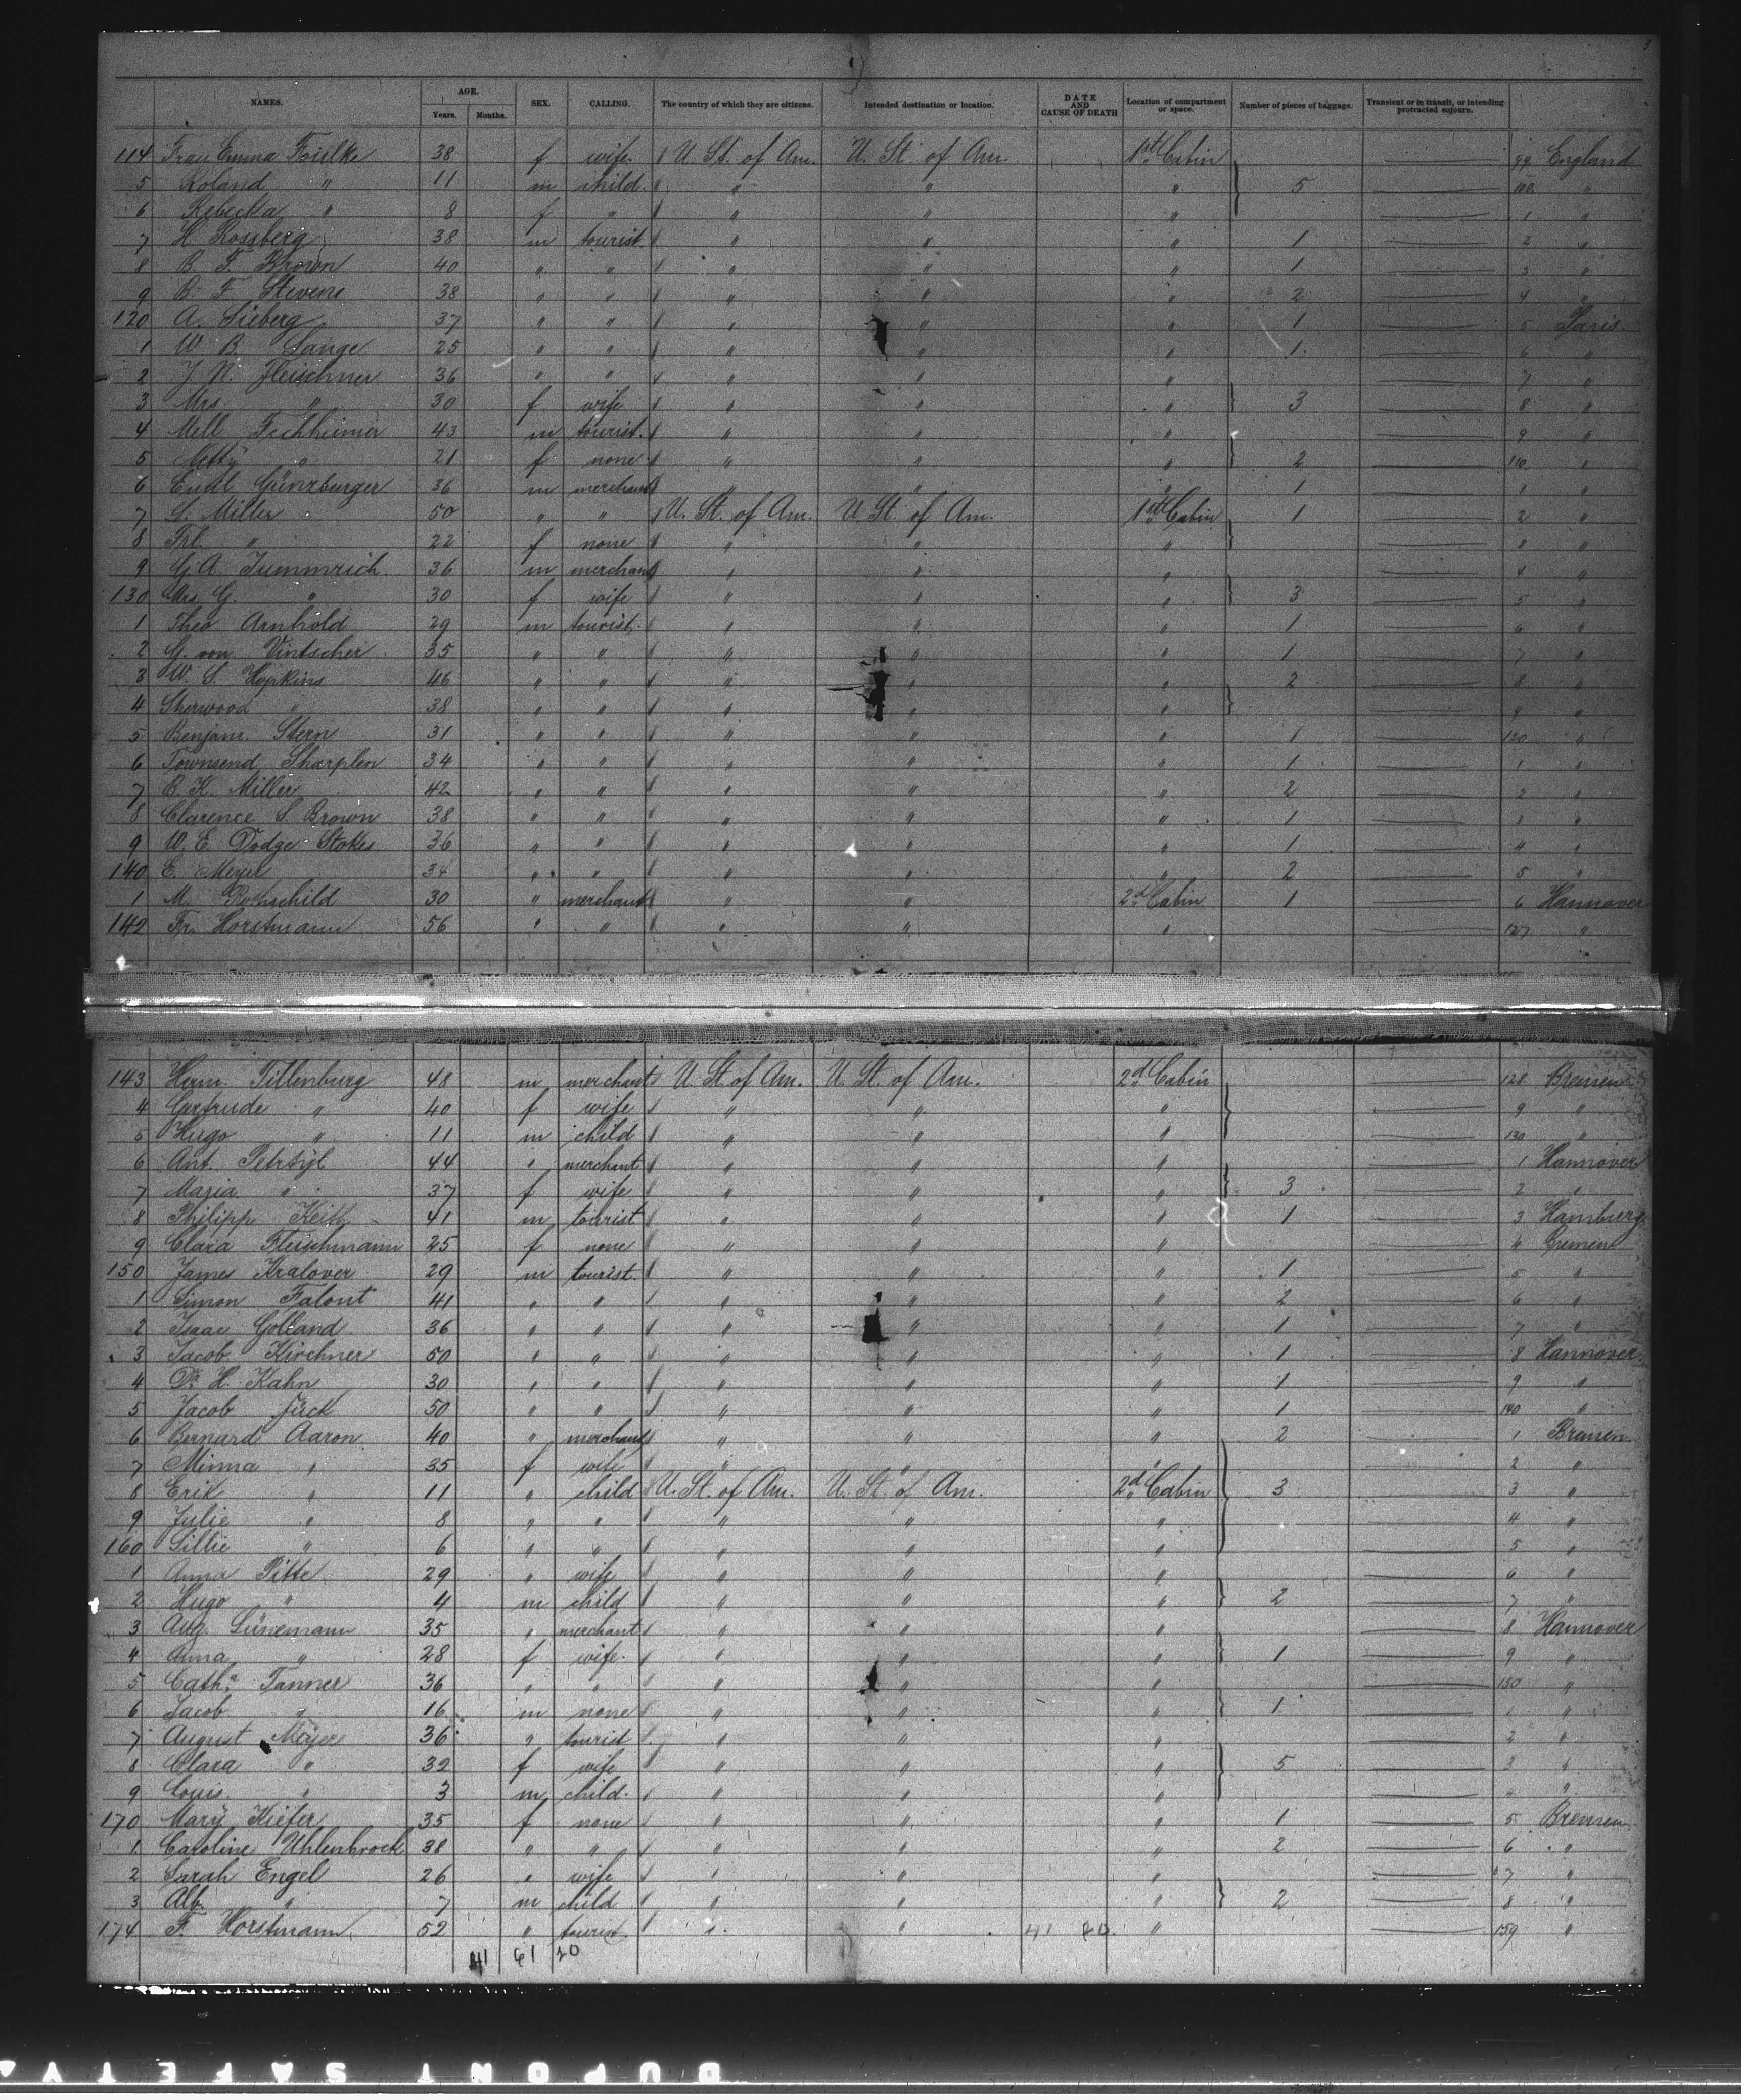 NAMES. AGE. Years. Months. SEX. CALLING. The country of which they are citizens. Intended destination or location. DATE AND CAUSE OF DEATH Location of compartment or space. Number of pieces of baggage. Transient or in transit, or intending protracted sojourn.
114 Frau Emma 38 f wife U St. of Am. U. St. of Am. 1st Cabin 99 England
5 Roland " 11 m child " " " 5 100 "
6 Rebecka " 8 f " " " " 1 "
7 H Rossberg 38 m tourist " " " 1 2 "
8 B. F. Brown 40 " " " " " 1 3 "
9 B. F. Stevens 38 " " " " " 2 4 "
120 A. Sieberg 37 " " " " " 1 5 Paris
1 W B. Lange 25 " " " " " 1 6 "
2 J N. Fleischner 36 " " " " " 7 "
3 Mrs. " 30 f wife " " " 3 8 "
4 Mell Fechheimer 43 m tourist " " " 9 "
5 Metty " 21 f none " " " 2 110 "
6 Emil Günzburger 36 m merchant " " " 1 1 "
7 S. Miller 50 " " U. St. of Am. U St. of Am. 1st Cabin 1 2 "
8 Frl. " 22 f none " " " 3 "
9 G. A. Jummrich 36 m merchant " " " 4 "
130 Mrs. G. " 30 f wife " " " 3 5 "
1 Theo Arnhold 29 m tourist " " " 1 6 "
2 G. von Vintscher 35 " " " " " 1 7 "
3 W. S. Hopkins 46 " " " " " 2 8 "
4 Sherwood " 38 " " " " " 9 "
5 Benjam. Stern 31 " " " " " 1 120 "
6 Townsend Sharples 34 " " " " " 1 1 "
7 E. K. Miller 42 " " " " " 2 2 "
8 Clarence S. Brown 38 " " " " " 1 3 "
9 W. E. Dodge Stokes 36 " " " " " 1 4 "
140 E. Meyer 34 " " " " " 2 5 "
1 M. Rothschild 30 " merchant " " 2d Cabin 1 6 Hannover
142 Fr. Horstmann 56 " " " " " 127 "
143 Herm. Tillenburg 48 m merchant U St. of Am. U. St. of Am. 2d Cabin 128 Bremen
4 Gertrude " 40 f wife " " " 9 "
5 Hugo " 11 m child " " " 130 "
6 Ant. 44 " merchant " " " 1 Hannover
7 Maria " 37 f wife " " " 3 2 "
8 Philipp Keith 41 m tourist " " " 1 3 Hamburg
9 Clara Fleischmann 25 f none " " " 4 Bremen
150 James Kralover 29 m tourist " " " 1 5 "
1 Simon Falout 41 " " " " " 2 6 "
2 Isaac Golland 36 " " " " " 1 7 "
3 Jacob Kirchner 50 " " " " " 1 8 Hannover
4 Dr. H. Kahn 30 " " " " " 1 9 "
5 Jacob Jück 50 " " " " " 1 140 "
6 Bernard Aaron 40 " merchant " " " 2 1 Bremen
7 Minna " 35 f wife " " " 2 "
8 Erik " 11 " child U. St. of Am. U. St. of Am. 2d Cabin 3 3 "
9 Julie " 8 " " " " " 4 "
160 Lillie " 6 " " " " " 5 "
1 Anna Pitte 29 " wife " " " 6 "
2 Hugo " 4 m child " " " 2 7 "
3 Aug. Lünemann 35 " merchant " " " 8 Hannover
4 Anna " 28 f wife " " " 1 9 "
5 Catha. Tanner 36 " " " " " 150 "
6 Jacob " 16 m none " " " 1 1 "
7 August Meyer 36 " tourist " " " 2 "
8 Clara " 32 f wife " " " 5 3 "
9 Louis " 3 m child " " " 4 "
170 Mary Kiefer 35 f none " " " 1 5 Bremen
1 Caroline Uhlenbrock 38 " " " " " 2 6 "
2 Sarah Engel 26 " wife " " " 7 "
3 Alb. " 7 m child " " " 2 8 "
174 F. Horstmann 52 " tourist " " 41 20 " 159 "
41 61 20
DUPONT SAFETY